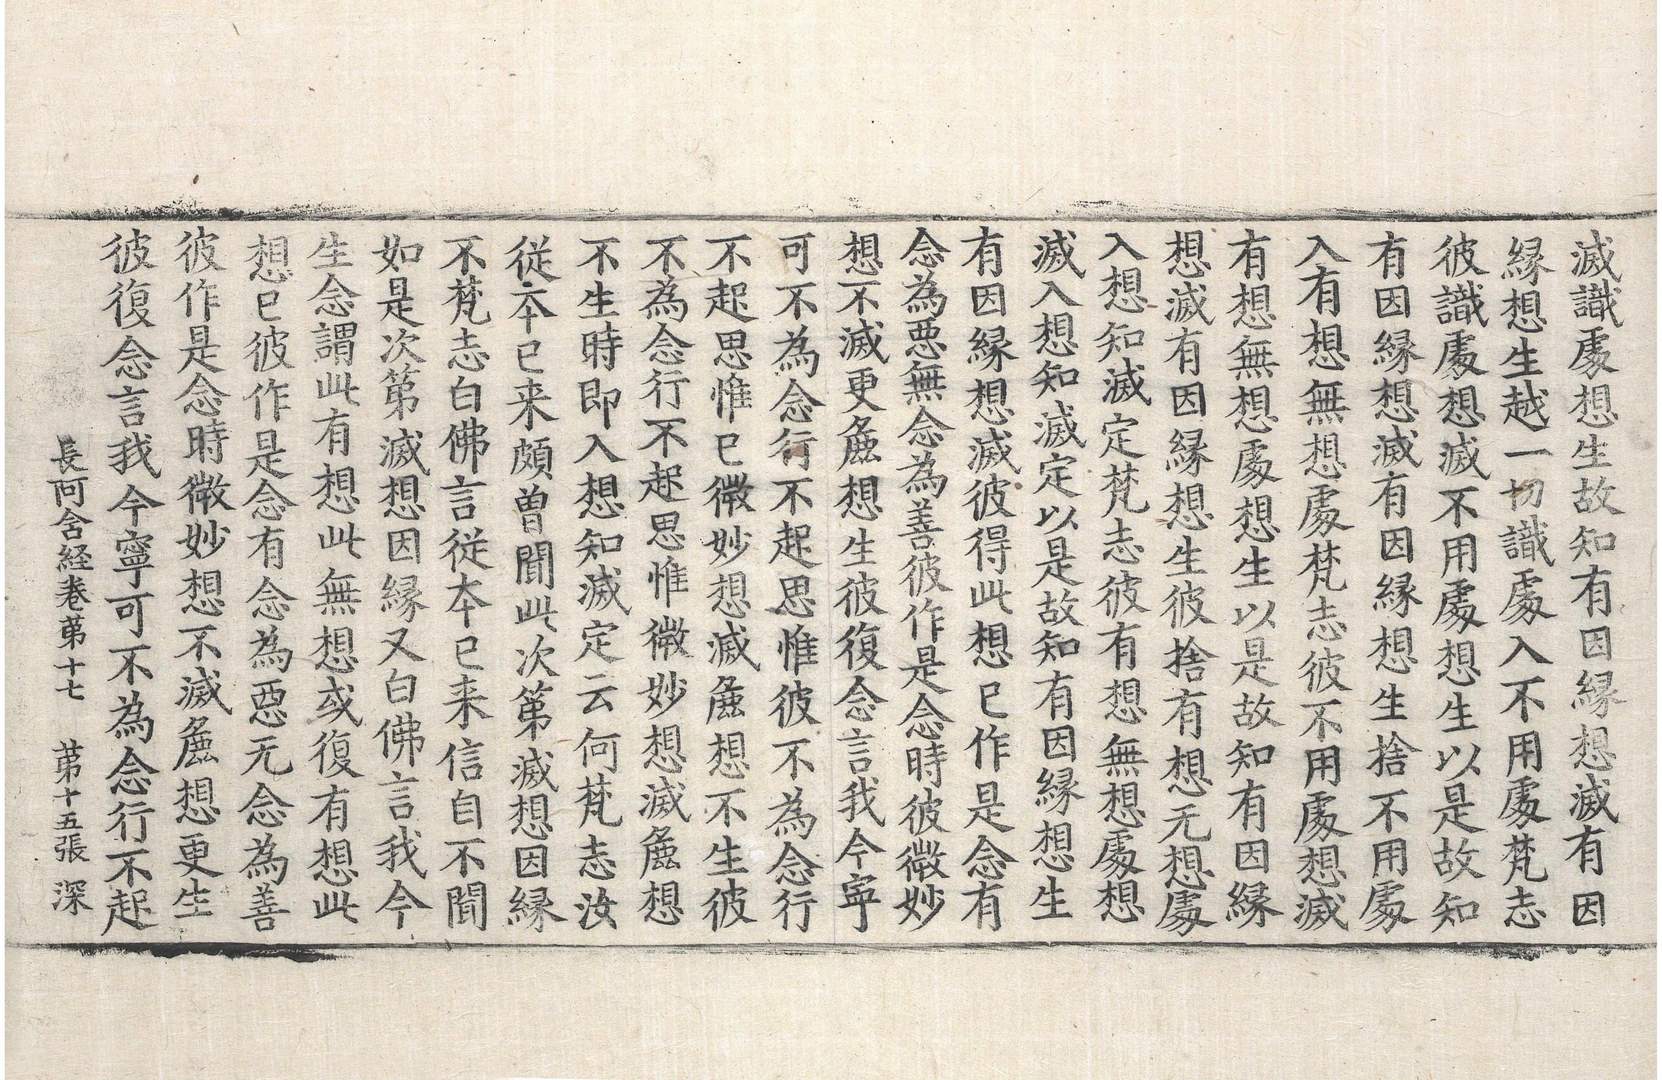 滅識處想生故知有因縁想滅有因
縁想生越一切識處入不用處梵志
彼識處想滅不用處想生以是故知
有因縁想滅有因縁想生捨不用處
入有想無想處梵志彼不用處想滅
有想無想處想生以是故知有因縁
想滅有因縁想生彼捨有想无想處
入想知滅定梵志彼有想無想處想
滅入想知滅定以是故知有因縁想生
有因縁想滅彼得此想已作是念有
念為惡無念為善彼作是念時彼微妙
想不滅更麁想生彼復念言我今寧
可不為念行不起思惟彼不為念行
不起思惟已微妙想滅麁想不生彼
不為念行不起思惟微妙想滅麁想
不生時即入想知滅定云何梵志汝
從本已来頗曽聞此次第滅想因縁
不梵志白佛言従本已来信自不聞
如是次第滅想因縁又白佛言我今
生念謂此有想此無想或復有想此
想已彼作是念有念為惡无念為善
彼作是念時微妙想不滅麁想更生
彼復念言我今寧可不為念行不起
長阿含経卷苐十七 苐十五張 深